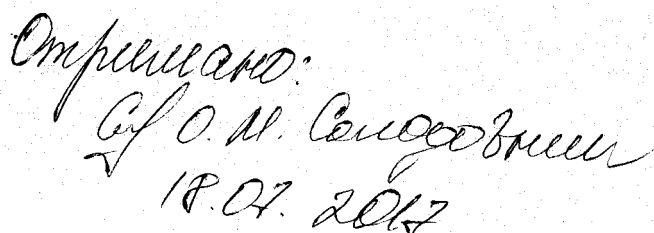 Отримано:
О. М. Солодовник
18.07.2017